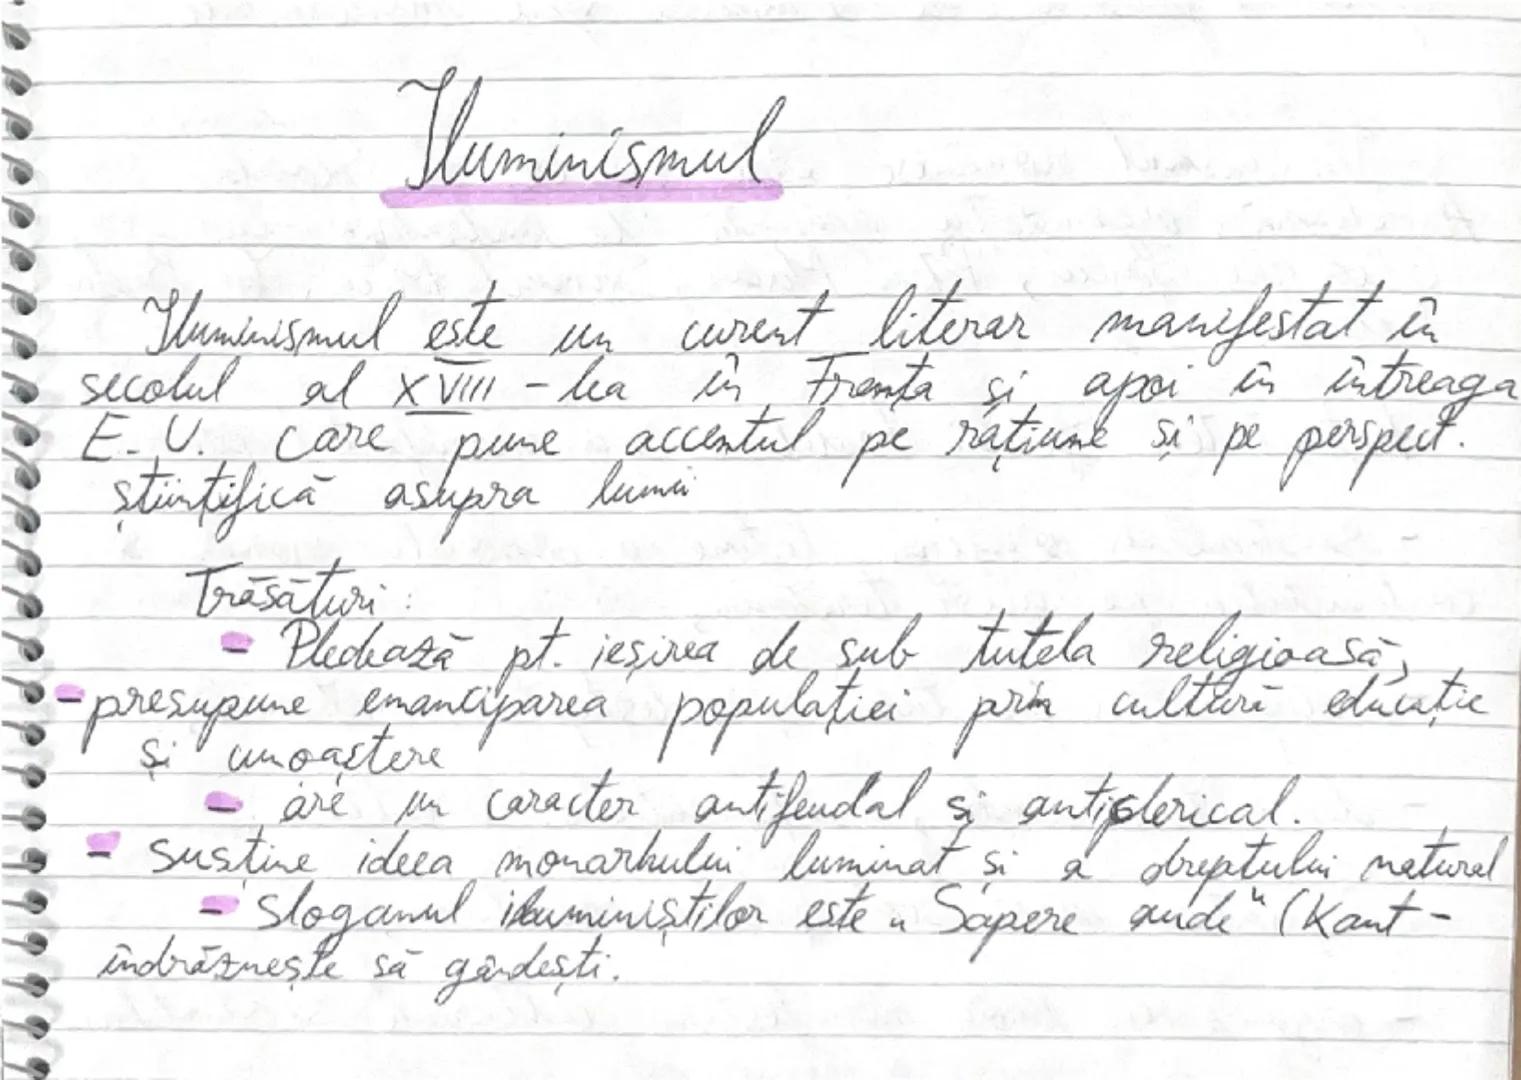 Iluminismul
Iluminismul este un curent literar manifestat în
secolul al XVIII-lea în Franța și apoi în întreaga
E.U. care pune accentul pe rațiune și pe perspect.
științifică asupra lumii
Trăsături:
- Pledează pt. ieșirea de sub tutela religioasă,
- presupune emanciparea populației prin cultură educație
și cunoaștere
- are un caracter antifeudal și anticlerical.
- susține ideea monarhului luminat și a dreptului natural
- Sloganul iluminiștilor este „Sapere aude" (Kant -
îndrăznește să gândești.